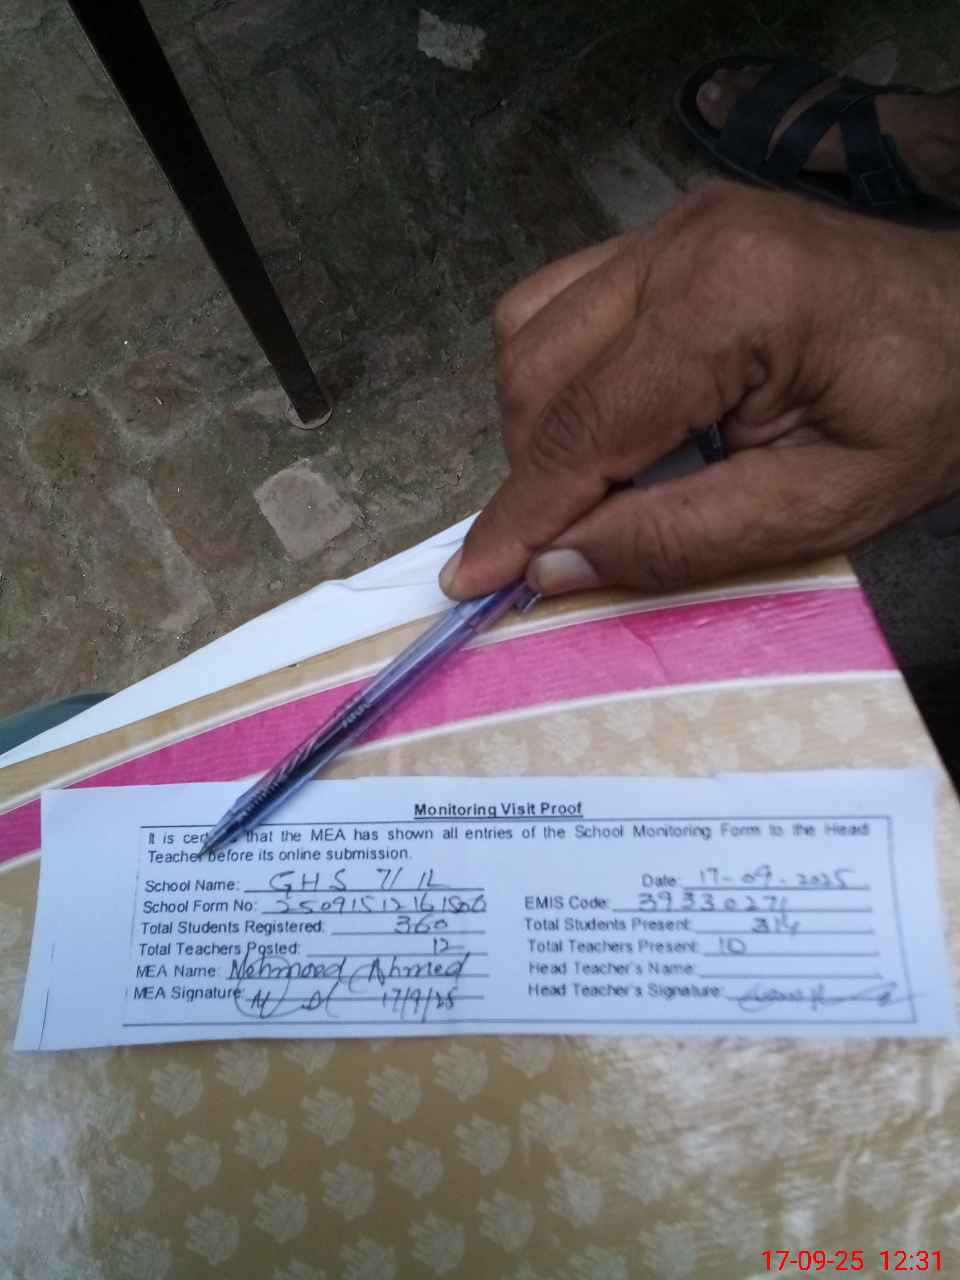 Monitoring Visit Proof
It is that the MEA has shown all entries of the School Monitoring Form to the Head
Teacher before its online submission.
School Name: GHS 71 12L Date: 17-09-2025
School Form No: EMIS Code: 39330271
Total Students Registered: 360 Total Students Present: 314
Total Teachers Posted: 12 Total Teachers Present: 10
MEA Name: Mehmood Ahmed Head Teacher's Name:
MEA Signature: 17/9/25 Head Teacher's Signature:
17-09-25 12:31